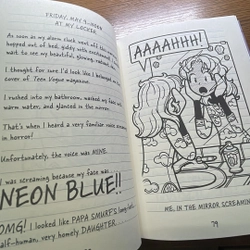 FRIDAY, MAY 9, NOON
AT MY LOCKER
As soon as my alarm clock went off this
hopped out of bed, giddy with
wait to see my beautiful, glowing,
I thought for sure I'd look like I belonged on the
cover of Teen Vogue magazine.
I rushed into my bathroom, washed my face with
warm water, and glanced in the mirror.
That's when I heard a very familiar voice
in horror!
Unfortunately, the voice was MINE.
I was screaming because my FACE was
NEON BLUE!!
OMG! I looked like PAPA SMURF'S
half-human, very homely DAUGHTER.
AAAAHHH!
ME, IN THE MIRROR SCREAMING
79